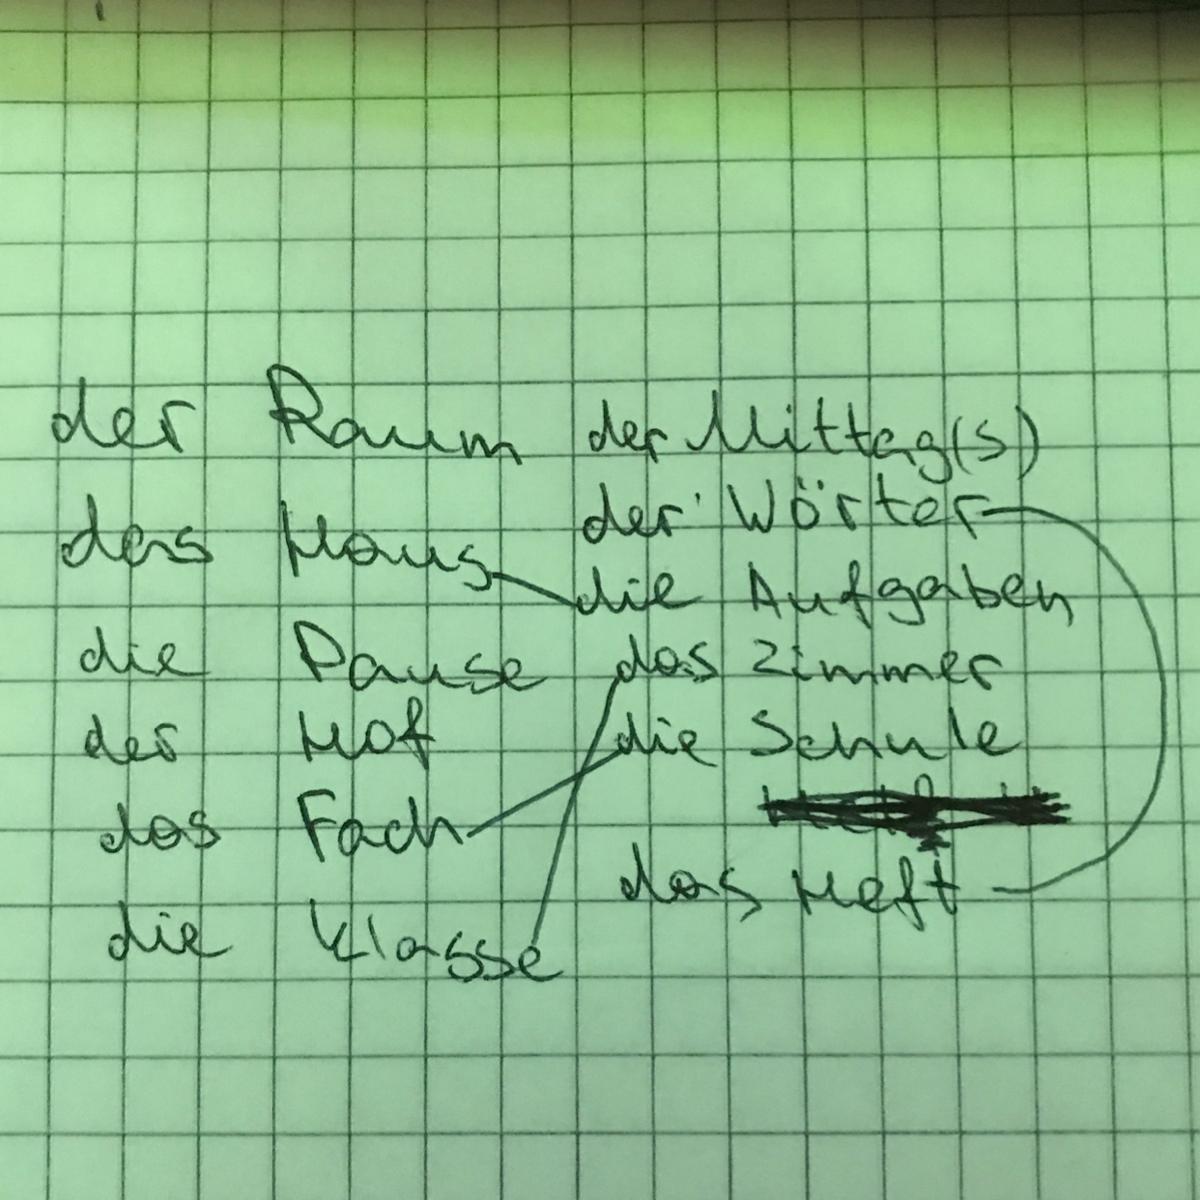 der Raum
das Haus
die Pause
der Hof
das Fach
die Klasse
der Mittag(s)
der Wörter
die Aufgaben
das Zimmer
die Schule
das Heft